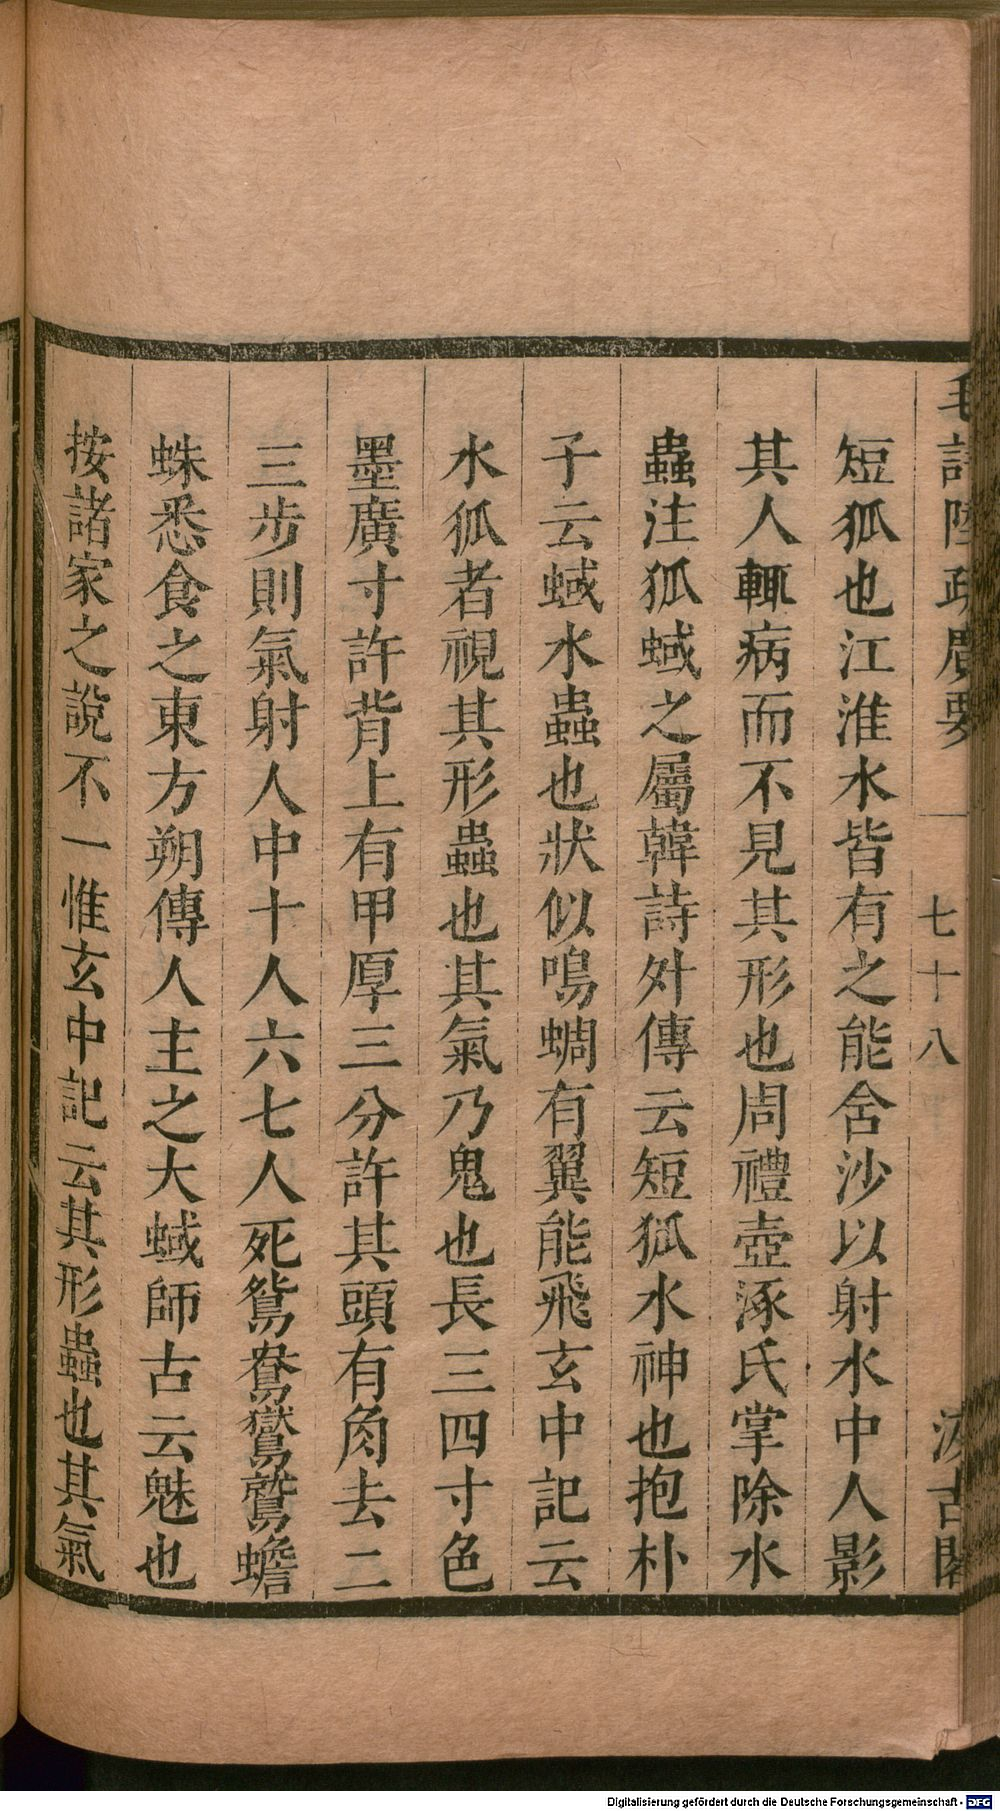 毛詩陸疏廣要 七十八 汲古閣
短狐也江淮水皆有之能含沙以射水中人影
其人輒病而不見其形也周禮壺涿氏掌除水
蟲注狐蜮之屬韓詩外傳云短狐水神也抱朴
子云蜮水蟲也狀似鳴蜩有翼能飛玄中記云
水狐者視其形蟲也其氣乃鬼也長三四寸色
墨廣寸許背上有甲厚三分許其頭有角去二
三步則氣射人中十人六七人死鴛鴦鸑鷟蟾
蛛悉食之東方朔傳人主之大蜮師古云魅也
按諸家之說不一惟玄中記云其形蟲也其氣
Digitalisierung gefördert durch die Deutsche Forschungsgemeinschaft - DFG